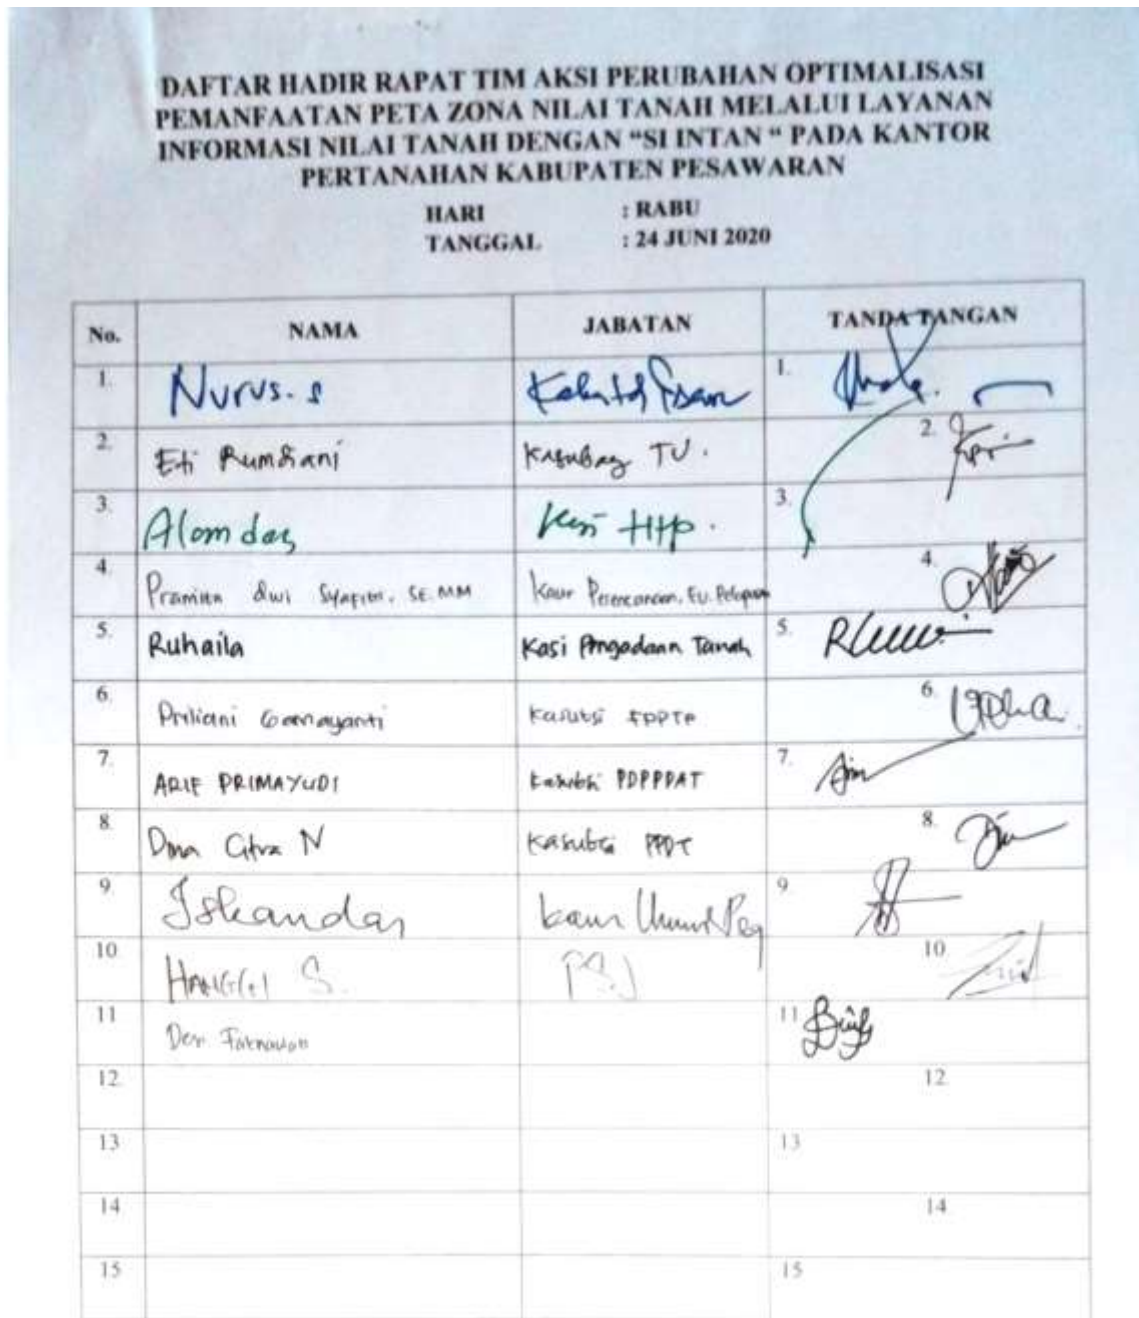 DAFTAR HADIR RAPAT TIM AKSI PERUBAHAN OPTIMALISASI
PEMANFAATAN PETA ZONA NILAI TANAH MELALUI LAYANAN
INFORMASI NILAI TANAH DENGAN "SI INTAN " PADA KANTOR
PERTANAHAN KABUPATEN PESAWARAN
HARI : RABU
TANGGAL : 24 JUNI 2020
No. NAMA JABATAN TANDA TANGAN
1. Nurus. S 1.
2. Eti Rumdiani Kasubag TU. 2.
3. Alamdas Kasi HHP. 3.
4 Dwi SE. MM Kaur Perencanaan, 4.
5. Ruhaila Kasi Pengadaan Tanah 5.
6. Priliani Kasubsi 6.
7. ARIF PRIMAYUDI Kasubsi PDPPPAT 7.
8. Citra N Kasubsi PPDT 8.
9 Iskandar Kaur 9
10 S. 10
11 11
12. 12.
13 13
14 14
15 15